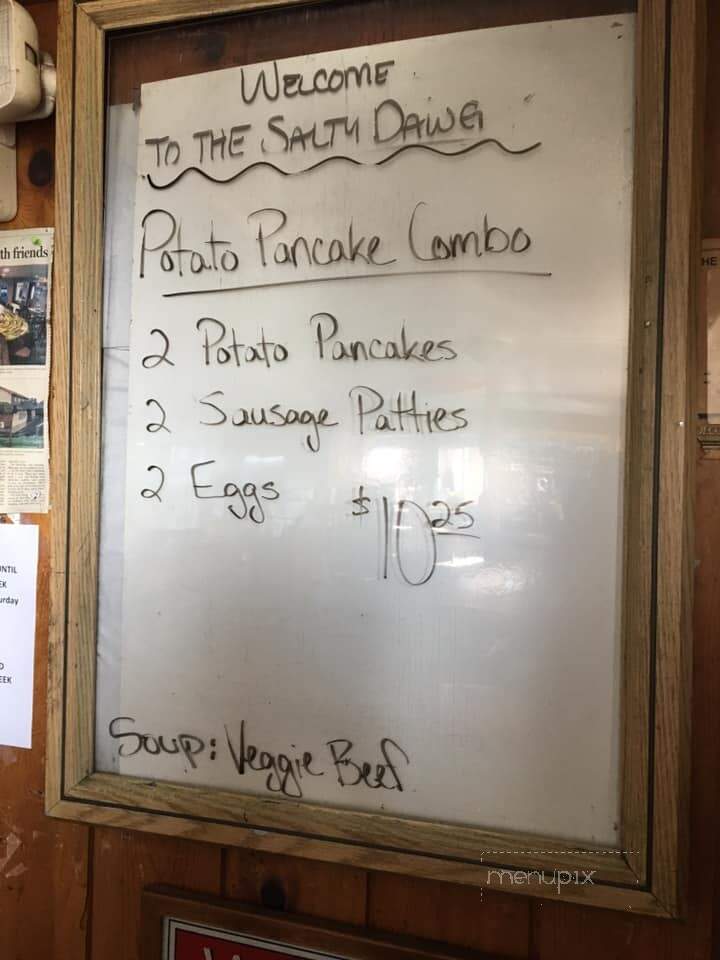 WELCOME
TO THE SALTY DAWG
Potato Pancake Combo
2 Potato Pancakes
2 Sausage Patties
2 Eggs
$10.25
Soup: Veggie Beef
th friends
UNTIL
EK
urday
EEK
HE
menupix